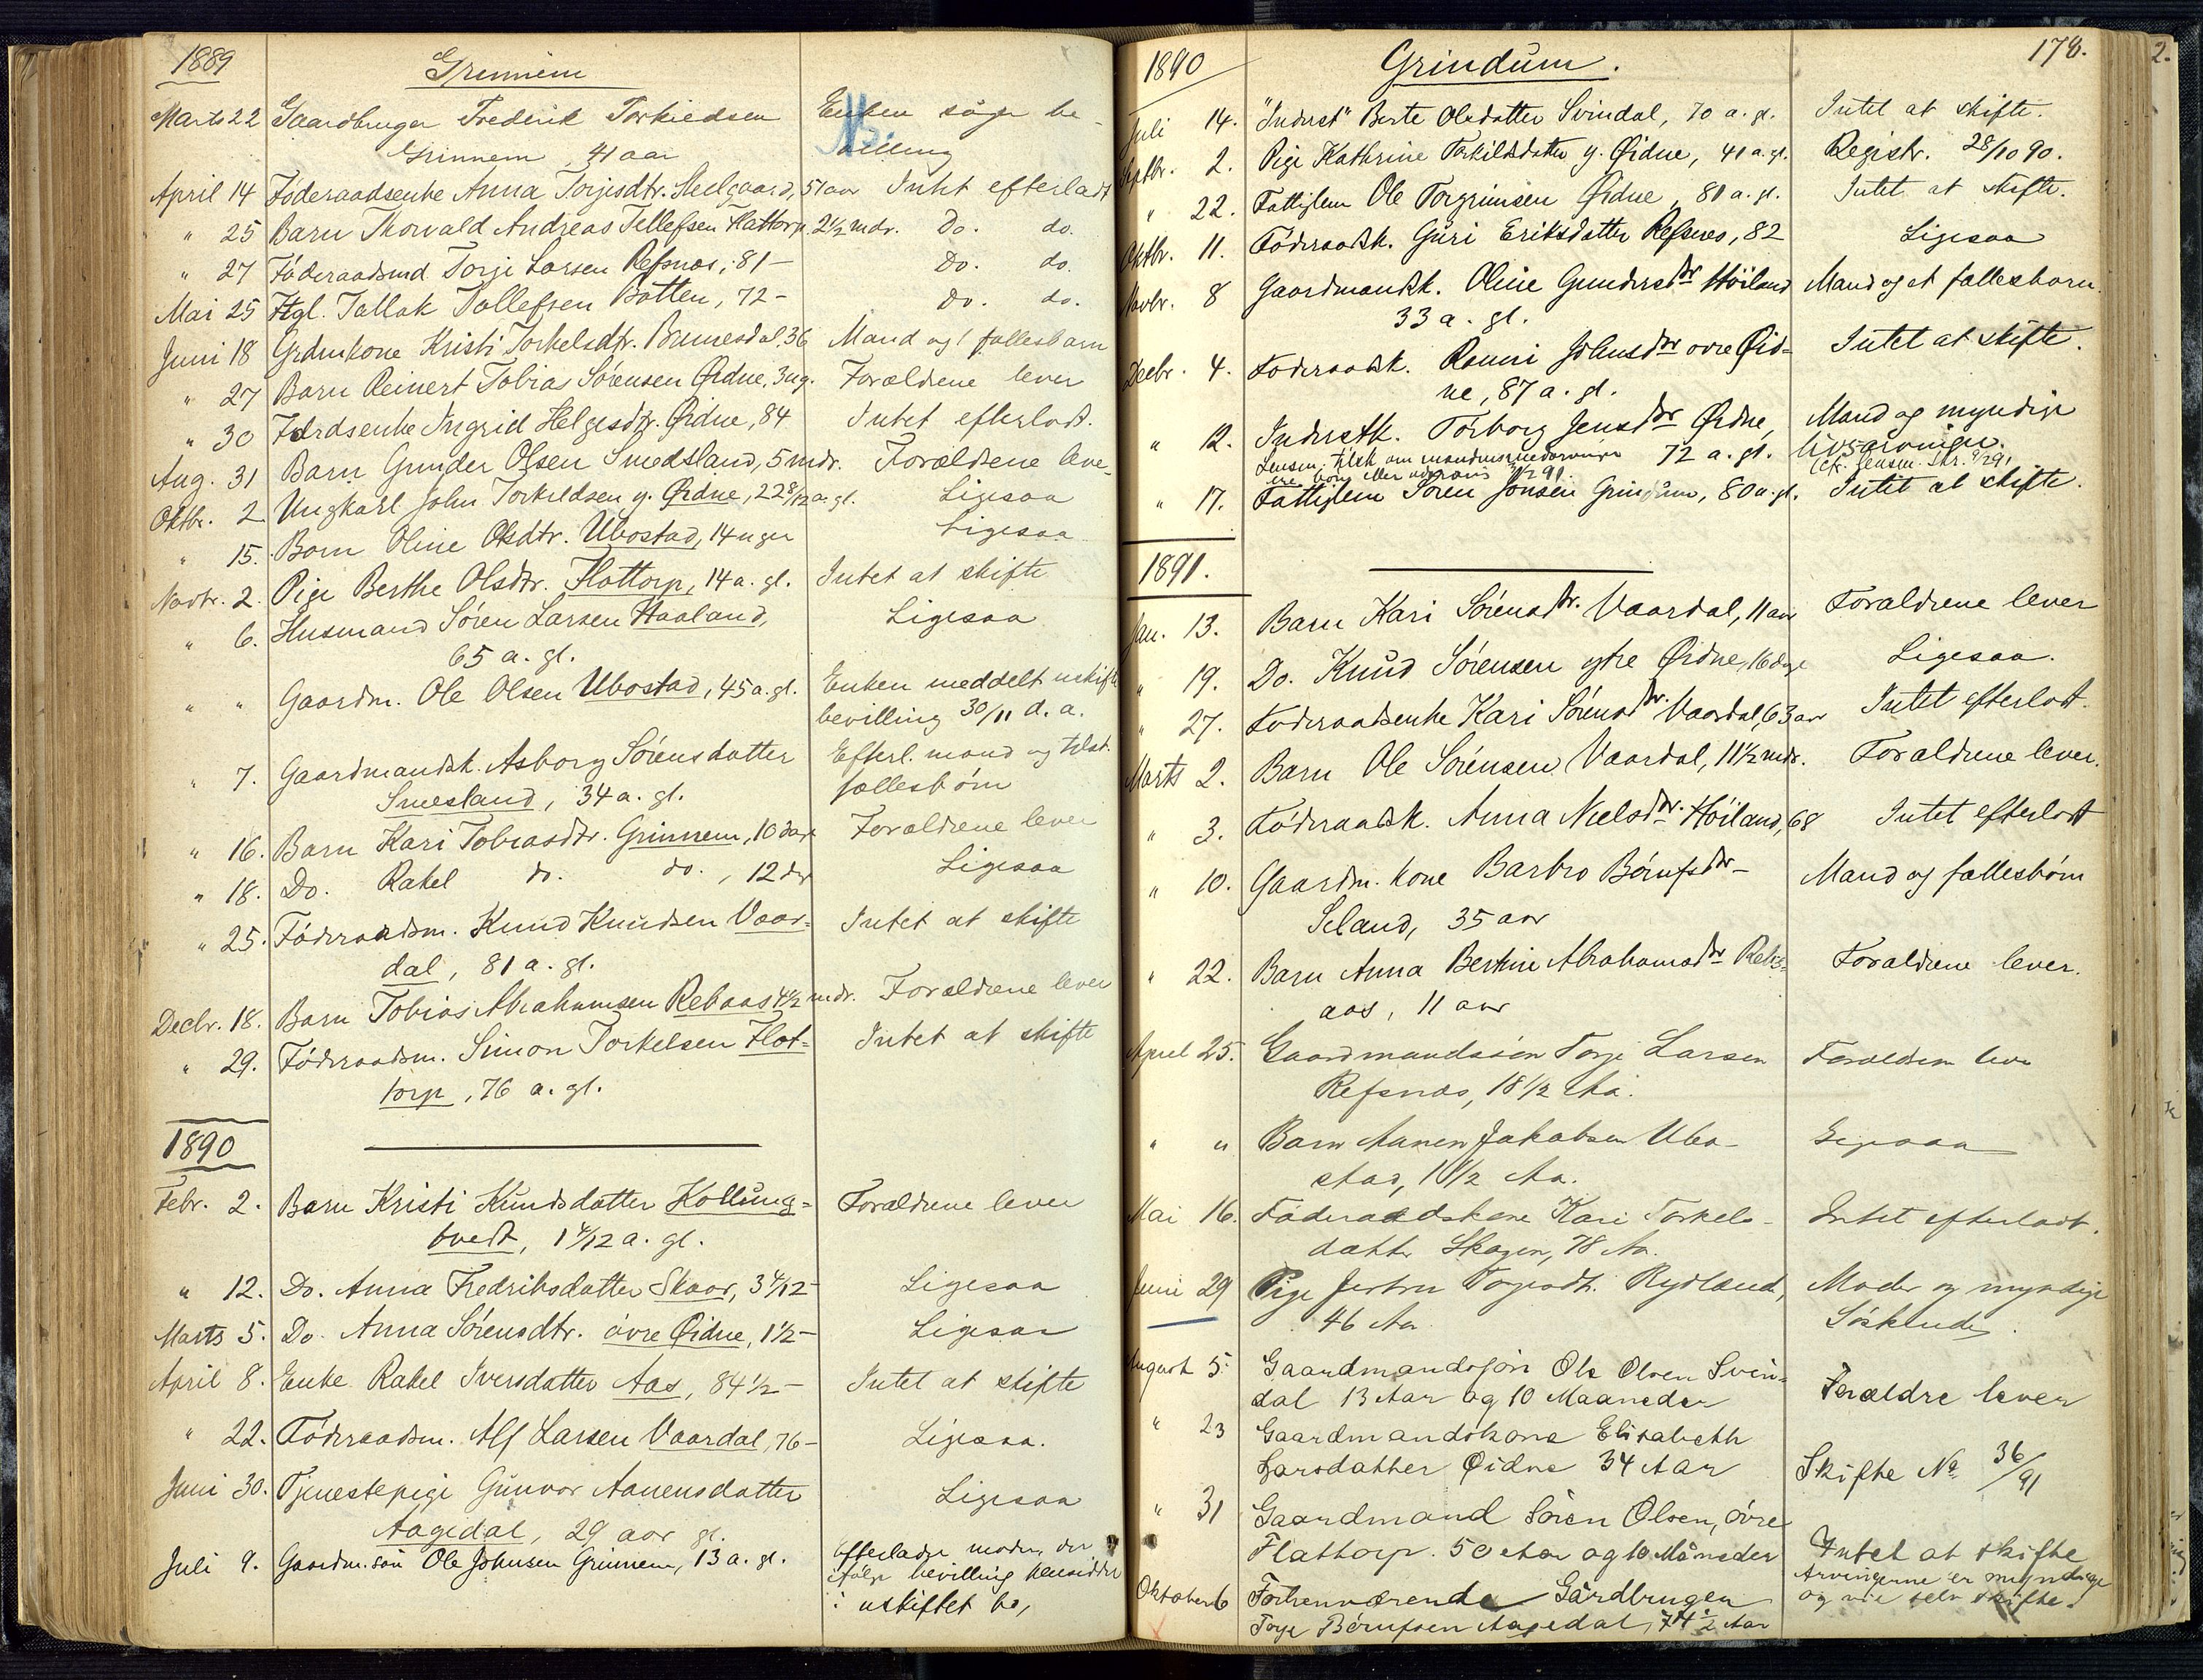 1889 Grinnem
Marts 22 Gaardbruger Frederik Torkiedsen Enken søger be-
Grinnem, 41 aar villing
April 14 Føderaadsenke Anna Torjesdtr. 51 aar Intet efterladt
" 25 Barn Thorvald Andreas Tellefsen Flattorp. 2½ mdr. Do. do.
" 27 Føderaadsmd. Torje Larsen Refsnes, 81 – Do. do.
Mai 25 Ftgl. Tallak Tollefsen Botten, 72 – Do. do.
Juni 18 Grdmkone Kristi Torkelsdtr. 36 Mand og 1 fællesbarn
" 27 Barn Reinert Tobias Sørensen Øidne, 3 ug. Forældrene lever
" 30 Fdrdsenke Ingrid Helgesdtr. Øidne, 84 Intet efterladt.
Aug. 31 Barn Gunder Olsen Smedsland, 5 mdr. Forældrene leve
Oktbr. 2 Ungkarl John Torkildsen y. Øidne, 22 8/12 a. gl. Ligesaa
" 15. Barn Oline Olsdtr. Ubostad, 14 uger Ligesaa
Novbr. 2. Pige Berthe Olsdtr. Flottorp, 14 a. gl. Intet at skifte
" 6. Husmand Søren Larsen Haaland, Ligesaa
65 a. gl.
" " Gaardm. Ole Olsen Ubostad, 45 a. gl. Enken meddelt uskifte
bevilling 30/11 d. a.
" 7. Gaardmandsk. Asborg Sørensdatter Efterl. mand og
Smesland, 34 a. gl. fællesbørn
" 16. Barn Kari Tobiasdtr. Grinnem, 10 dage Forældrene lever
" 18. Do. Rakel do. do., 12 dg Ligesaa
" 25. Føderaadsm. Knud Knudsen Vaar- Intet at skifte
dal, 81 a. gl.
Decbr. 18. Barn Tobias Abrahamsen Rebaas 4½ mdr. Forældrene lever
" 29. Føderaadsm. Simon Torkelsen Flot- Intet at skifte
torp, 76 a. gl.
1890
Febr. 2. Barn Kristi Knudsdatter Kollung- Forældrene lever
tvedt, 1 4/12 a. gl.
" 12. Do. Anna Fredriksdatter Skaar, 3 4/12 – Ligesaa
Marts 5. Do. Anna Sørensdtr. øvre Øidne, 1½ – Ligesaa
April 8. Enke Rakel Iversdatter Aas, 84½ – Intet at skifte
" 22. Føderaadsm. Alf Larsen Vaardal, 76 – Ligesaa.
Juni 30. Tjenestepige Gunvor Aanensdatter Ligesaa
Aagedal, 29 aar gl.
Juli 9. Gaardm.søn Ole Johnsen Grinnem, 13 a. gl. Efterlader moder, der
ifølge bevilling hensidder
i uskiftet bo,
1890 Grindum. 178.
Juli 14. "Inderst" Berte Olsdatter Svindal, 70 a. gl. Intet at skifte.
Septbr. 2. Pige Kathrine Torkildsdatter y. Øidne, 41 a. gl. Registr. 28/10 90.
" 22. Fattiglem Ole Torgrimsen Øidne, 81 a. gl. Intet at skifte.
Oktbr. 11. Føderaadsk. Guri Eriksdatter Refsnes, 82 Ligesaa
Novbr. 8 Gaardmandsk. Oline Gundersdtr Høiland Mand og et fællesbarn.
33 a. gl.
Decbr. 4. Føderaadsk. Ronni Johnsdtr øvre Øid- Intet at skifte.
ne, 87 a. gl.
" 12. Inderstk. Torborg Jensdtr Øidne, Mand og myndige
72 a. gl. livsarvinger.
" 17. Fattiglem Søren Jonsen Grindum, 80 a. gl. Intet at skifte.
1891.
Jan. 13. Barn Kari Sørensdtr. Vaardal, 11 aar Forældrene lever
" 19. Do. Knud Sørensen ytre Øidne, 16 dage Ligesaa.
" 27. Føderaadsenke Kari Sørensdtr. Vaardal, 63 aar Intet efterladt.
Marts 2. Barn Ole Sørensen Vaardal, 11½ mdr. Forældrene lever.
" 3. Føderaadsk. Anna Nielsdtr. Høiland, 68 Intet efterladt
" 10. Gaardm. kone Barbro Børufsdtr – Mand og fællesbørn
Seland, 35 aar
" 22. Barn Anna Bertine Abrahamsdtr Reb- Forældrene lever.
aas, 11 aar
April 25. Gaardmandssøn Torje Larsen Forældren leve
Refsnes, 18 1/2 Aa.
" " Barn Aanen Jakobsen Ubo- Ligesaa
stad, 10 1/2 Aa.
Mai 16. Føderaadskone Kari Torkels- Intet efterladt.
datter Skagen, 78 Aa.
Juni 29 Pige Torjesdt. Rydland, Moder og myndige
46 Aa. Søskende.
August 5. Gaardmandssøn Ole Olsen Svin-
dal 13 Aar og 10 Maaneder Forældre lever
" 23 Gaardmandskone Elisabeth
Larsdatter Øidne 34 Aar Skifte No 36/91
" 31 Gaardmand Søren Olsen, øvre
Flattorp. 50 Aar og 10 Måneder Intet at skifte
Oktober 6 Forhenværende Gårdbruger Arvingerne er myndige
Torje Børufsen Aagedal, 74 ½ Aar og vil selv skifte.